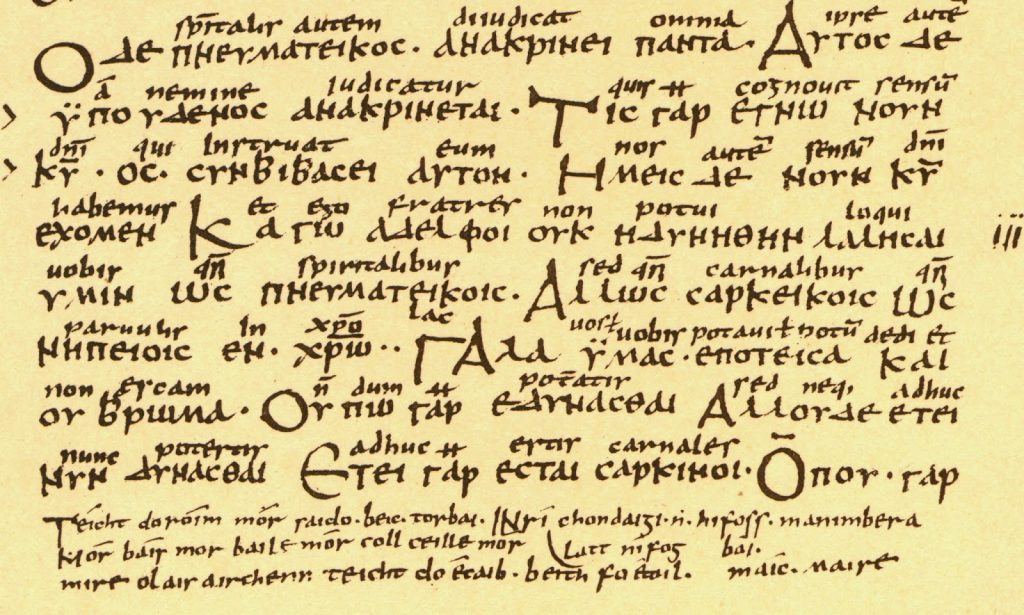 sp̄italis autem diiudicat omnia ipse autē
Ο ΔΕ ΠΝΕΥΜΑΤΕΙΚΟΣ · ΑΝΑΚΡΙΝΕΙ ΠΑΝΤΑ · ΑΥΤΟΣ ΔΕ
a nemine iudicatur quis cognouit sensū
ΫΠΟΥΔΕΝΟΣ ΑΝΑΚΡΙΝΕΤΑΙ · ΤΙΣ ΓΑΡ ΕΓΝΩ ΝΟΥΝ
dn̄i qui instruat eum nos autē sensū dn̄i
ΚῩ · ΟΣ · ΣΥΝΒΙΒΑΣΕΙ ΑΥΤΟΝ · ΗΜΕΙΣ ΔΕ ΝΟΥΝ ΚῩ
habemus et ego fratres non potui loqui
ΕΧΟΜΕΝ ΚΑΓΩ ΑΔΕΛΦΟΙ ΟΥΚ ΗΔΥΝΗΘΗΝ ΛΑΛΗΣΑΙ iii
uobis qn̄ spiritalibus sed qn̄ carnalibus qn̄
ΥΜΙΝ ΩΣ ΠΝΕΥΜΑΤΕΙΚΟΙΣ · ΑΛΛΩΣ ΣΑΡΚΕΙΚΟΙΣ ΩΣ
paruulis in xp̄o lac uos ł uobis potaui ł potū dedi et
ΝΗΠΕΙΟΙΣ ΕΝ · ΧΡΩ̄ · · ΓΑΛΑ ΫΜΑΣ · ΕΠΟΤΕΙΣΑ ΚΑΙ
non escam n̄ dum potēatis sed neq, adhuc
ΟΥ ΒΡΩΜΑ · ΟΥΠΩ ΓΑΡ ΕΔΥΝΑΣΘΑΙ ΑΛΛΟΥΔΕ ΕΤΕΙ
nunc potestis adhuc estis carnales
ΝΥΝ ΔΥΝΑΣΘΑΙ ΕΤΕΙ ΓΑΡ ΕΣΤΑΙ ΣΑΡΚΙΝΟΙ · ΟΠΟΥ · ΓΑΡ
Teicht doróim mór saido · beic · torbai · INrí chondaigi · n · hifoss · manimbera
latt nífog bai ·
Mór báis mor baile mór coll ceille mór
mire olair airchenn teicht do écaib · beith fo étoil · maic · maire